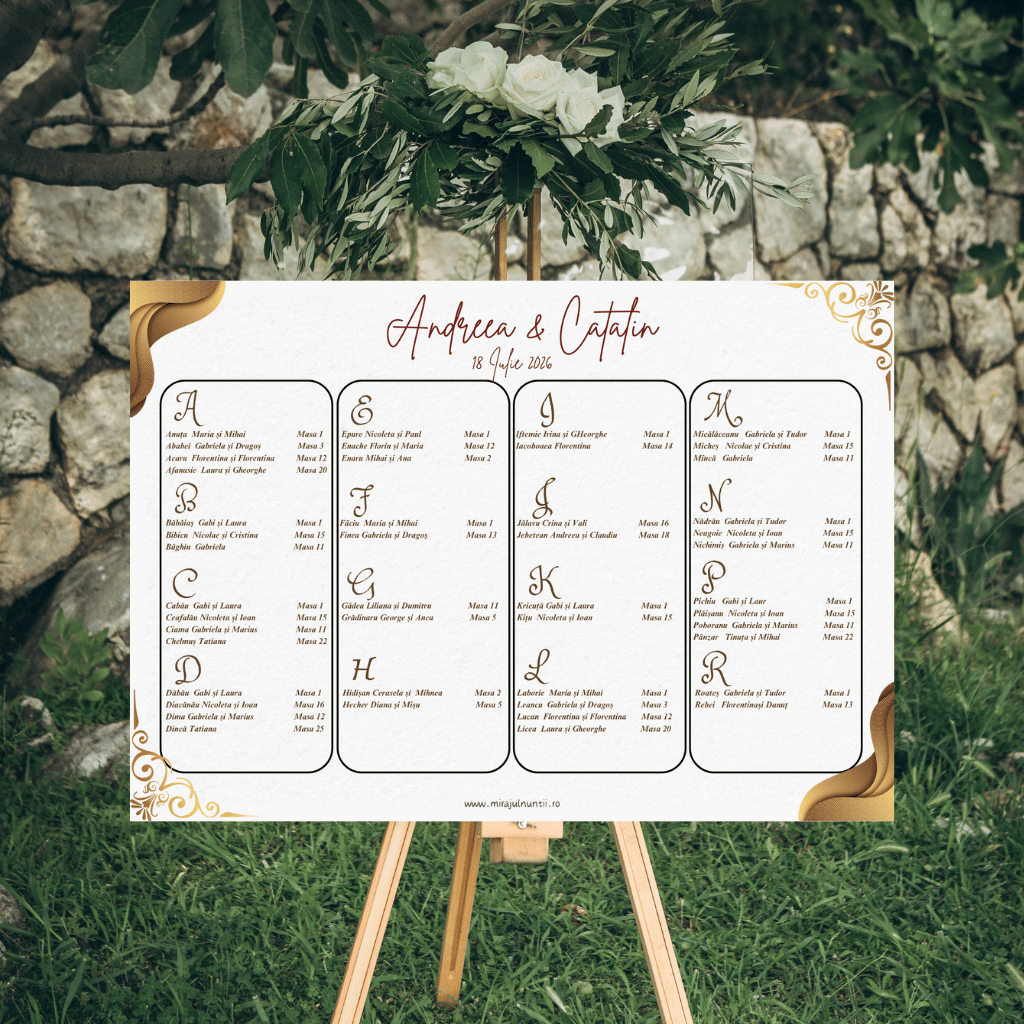 Andreea & Catalin
18 Iulie 2026
A
Anuța Maria și Mihai Masa 1
Ababei Gabriela și Dragoș Masa 3
Acaru Florentina și Florentina Masa 12
Afanasie Laura și Gheorghe Masa 20
B
Băbăiaș Gabi și Laura Masa 1
Bibicu Nicolae și Cristina Masa 15
Băghiu Gabriela Masa 11
C
Cabău Gabi și Laura Masa 1
Ceafalău Nicoleta și Ioan Masa 15
Ciama Gabriela și Marius Masa 11
Chelmuș Tatiana Masa 22
D
Dăbău Gabi și Laura Masa 1
Diacănău Nicoleta și Ioan Masa 16
Dima Gabriela și Marius Masa 12
Dincă Tatiana Masa 25
E
Epure Nicoleta și Paul Masa 1
Enache Florin și Maria Masa 12
Enaru Mihai și Ana Masa 2
F
Făciu Maria și Mihai Masa 1
Finea Gabriela și Dragoș Masa 13
G
Gâdea Liliana și Dumitru Masa 11
Grădinaru George și Anca Masa 5
H
Hidișan Cerasela și Mihnea Masa 2
Hecher Diana și Mișu Masa 5
I
Iftemie Irina și GHeorghe Masa 1
Iacoboaea Florentina Masa 14
J
Jălavu Crina și Vali Masa 16
Jebetean Andreea și Claudiu Masa 18
K
Kricuță Gabi și Laura Masa 1
Kițu Nicoleta și Ioan Masa 15
L
Laborie Maria și Mihai Masa 1
Leancu Gabriela și Dragoș Masa 3
Lucan Florentina și Florentina Masa 12
Licea Laura și Gheorghe Masa 20
M
Micălăceanu Gabriela și Tudor Masa 1
Micheș Nicolae și Cristina Masa 15
Mincă Gabriela Masa 11
N
Nădrău Gabriela și Tudor Masa 1
Neagoie Nicoleta și Ioan Masa 15
Nichimiș Gabriela și Marius Masa 11
P
Pichiu Gabi și Laur Masa 1
Plăișanu Nicoleta și Ioan Masa 15
Poboranu Gabriela și Marius Masa 11
Pânzar Tinuța și Mihai Masa 22
R
Roateș Gabriela și Tudor Masa 1
Rebei Florentinași Danuț Masa 13
www.mirajulnuntii.ro